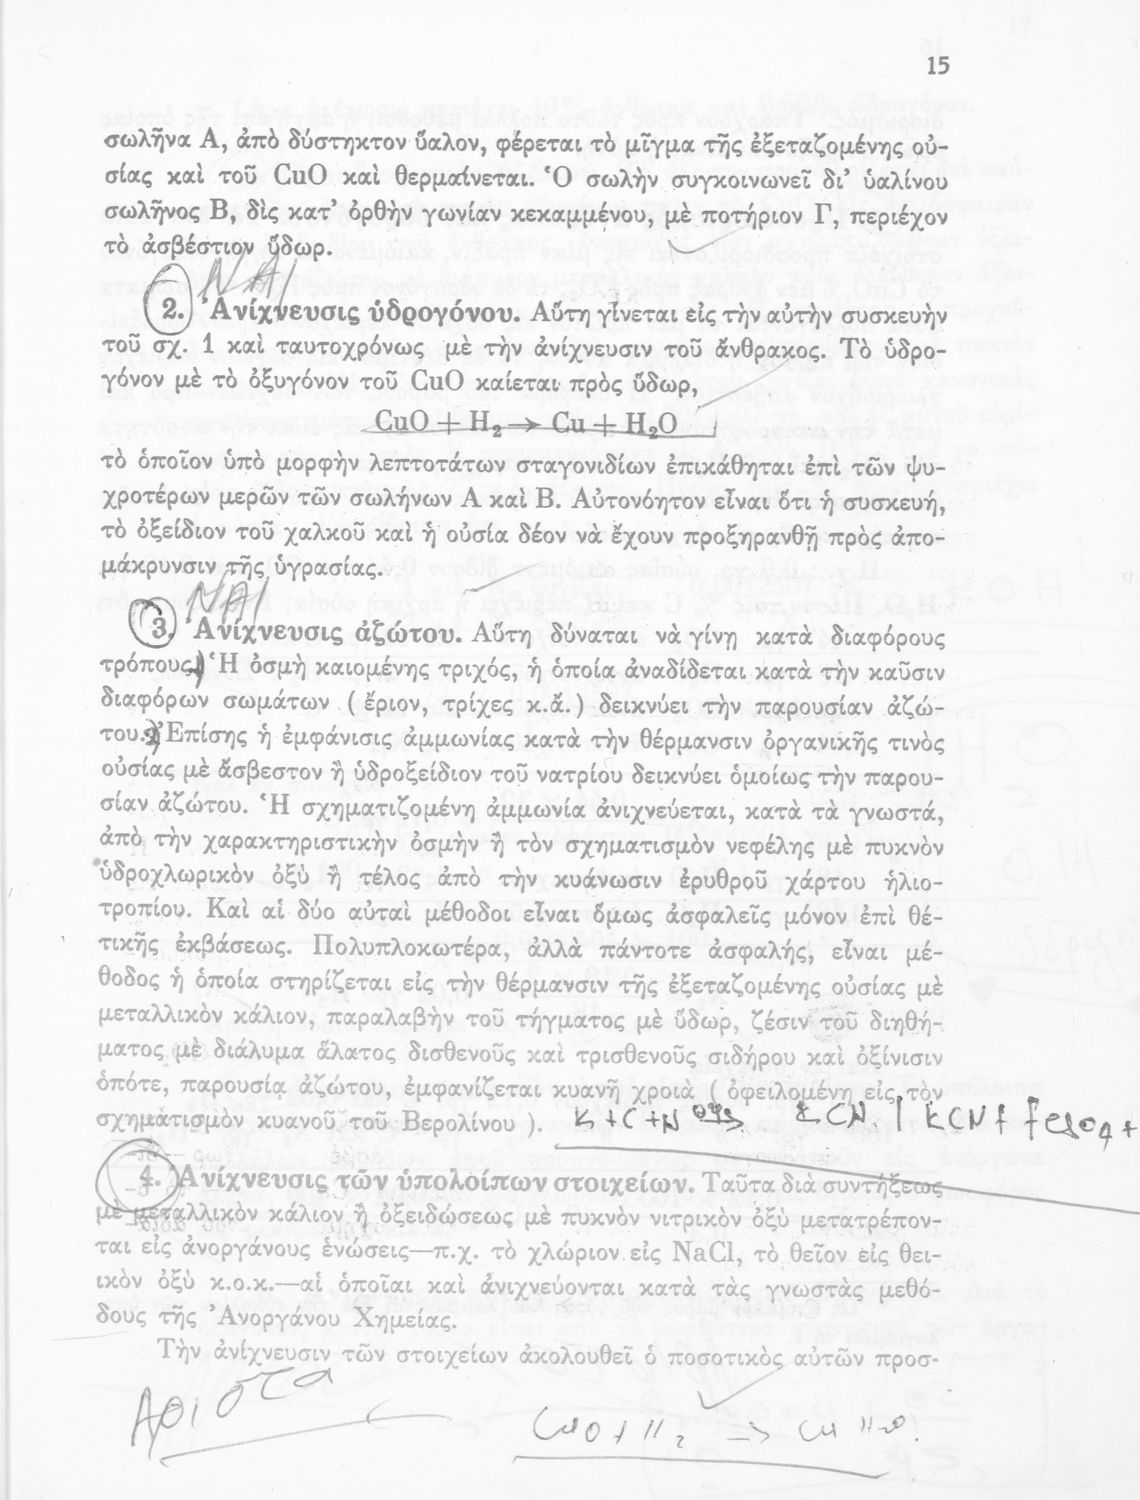 15
σωλῆνα Α, ἀπὸ δύστηκτον ὕαλον, φέρεται τὸ μῖγμα τῆς ἐξεταζομένης οὐ-
σίας καὶ τοῦ CuO καὶ θερμαίνεται. Ὁ σωλὴν συγκοινωνεῖ δι' ὑαλίνου
σωλῆνος Β, δὶς κατ' ὀρθὴν γωνίαν κεκαμμένου, μὲ ποτήριον Γ, περιέχον
τὸ ἀσβέστιον ὕδωρ.
ΝΑΙ
2. Ἀνίχνευσις ὑδρογόνου. Αὕτη γίνεται εἰς τὴν αὐτὴν συσκευὴν
τοῦ σχ. 1 καὶ ταυτοχρόνως μὲ τὴν ἀνίχνευσιν τοῦ ἄνθρακος. Τὸ ὑδρο-
γόνον μὲ τὸ ὀξυγόνον τοῦ CuO καίεται πρὸς ὕδωρ,
CuO + H₂ → Cu + H₂O
τὸ ὁποῖον ὑπὸ μορφὴν λεπτοτάτων σταγονιδίων ἐπικάθηται ἐπὶ τῶν ψυ-
χροτέρων μερῶν τῶν σωλήνων Α καὶ Β. Αὐτονόητον εἶναι ὅτι ἡ συσκευή,
τὸ ὀξείδιον τοῦ χαλκοῦ καὶ ἡ οὐσία δέον νὰ ἔχουν προξηρανθῇ πρὸς ἀπο-
μάκρυνσιν τῆς ὑγρασίας.
ΝΑΙ
3. Ἀνίχνευσις ἀζώτου. Αὕτη δύναται νὰ γίνῃ κατὰ διαφόρους
τρόπους. Ἡ ὀσμὴ καιομένης τριχός, ἡ ὁποία ἀναδίδεται κατὰ τὴν καῦσιν
διαφόρων σωμάτων ( ἔριον, τρίχες κ.ἄ. ) δεικνύει τὴν παρουσίαν ἀζώ-
του. Ἐπίσης ἡ ἐμφάνισις ἀμμωνίας κατὰ τὴν θέρμανσιν ὀργανικῆς τινὸς
οὐσίας μὲ ἄσβεστον ἢ ὑδροξείδιον τοῦ νατρίου δεικνύει ὁμοίως τὴν παρου-
σίαν ἀζώτου. Ἡ σχηματιζομένη ἀμμωνία ἀνιχνεύεται, κατὰ τὰ γνωστά,
ἀπὸ τὴν χαρακτηριστικὴν ὀσμὴν ἢ τὸν σχηματισμὸν νεφέλης μὲ πυκνὸν
ὑδροχλωρικὸν ὀξὺ ἢ τέλος ἀπὸ τὴν κυάνωσιν ἐρυθροῦ χάρτου ἡλιο-
τροπίου. Καὶ αἱ δύο αὐταὶ μέθοδοι εἶναι ὅμως ἀσφαλεῖς μόνον ἐπὶ θε-
τικῆς ἐκβάσεως. Πολυπλοκωτέρα, ἀλλὰ πάντοτε ἀσφαλής, εἶναι μέ-
θοδος ἡ ὁποία στηρίζεται εἰς τὴν θέρμανσιν τῆς ἐξεταζομένης οὐσίας μὲ
μεταλλικὸν κάλιον, παραλαβὴν τοῦ τήγματος μὲ ὕδωρ, ζέσιν τοῦ διηθή-
ματος μὲ διάλυμα ἅλατος δισθενοῦς καὶ τρισθενοῦς σιδήρου καὶ ὀξίνισιν
ὁπότε, παρουσίᾳ ἀζώτου, ἐμφανίζεται κυανῆ χροιὰ ( ὀφειλομένη εἰς τὸν
σχηματισμὸν κυανοῦ τοῦ Βερολίνου ). K + C + N → KCN | KCN + FeSO4 +
4. Ἀνίχνευσις τῶν ὑπολοίπων στοιχείων. Ταῦτα διὰ συντήξεως
μὲ μεταλλικὸν κάλιον ἢ ὀξειδώσεως μὲ πυκνὸν νιτρικὸν ὀξὺ μετατρέπον-
ται εἰς ἀνοργάνους ἑνώσεις—π.χ. τὸ χλώριον εἰς NaCl, τὸ θεῖον εἰς θει-
ικὸν ὀξὺ κ.ο.κ.—αἱ ὁποῖαι καὶ ἀνιχνεύονται κατὰ τὰς γνωστὰς μεθό-
δους τῆς Ἀνοργάνου Χημείας.
Τὴν ἀνίχνευσιν τῶν στοιχείων ἀκολουθεῖ ὁ ποσοτικὸς αὐτῶν προσ-
Αριστα
CuO + H₂ → Cu H₂O